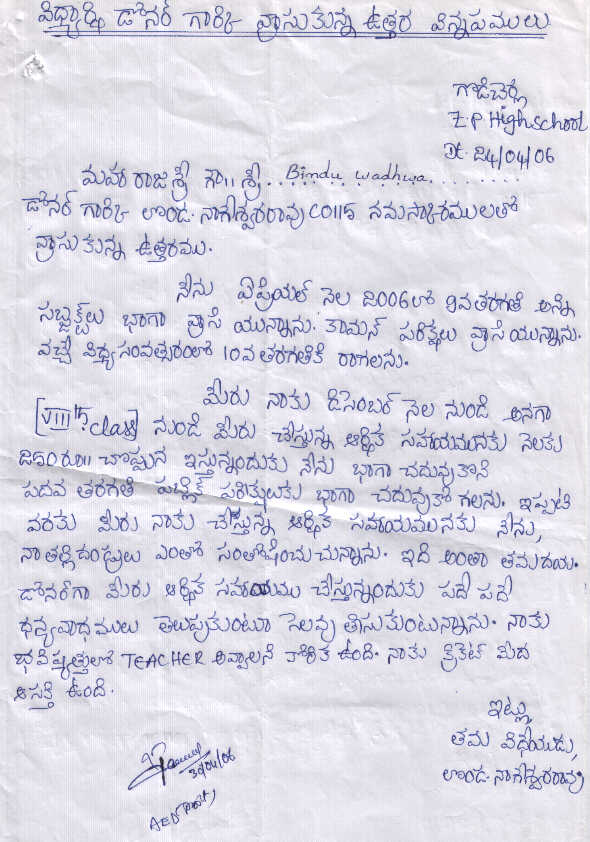 విద్యార్థి డోనర్ గారికి వ్రాసుకున్న ఉత్తర విన్నపములు
గొడిచెర్ల
Z.P High school
Dt. 24/04/06
మహారాజశ్రీ గౌ॥ శ్రీ. Bindu wadhwa
డోనర్ గారికి లొండ. నాగేశ్వరరావు C0115 నమస్కారములతో
వ్రాసుకున్న ఉత్తరము.
నేను ఏప్రియల్ నెల 2006లో 9వతరగతి అన్ని
సబ్జక్ట్‌లు భాగా వ్రాసి యున్నాను. కామన్ పరిక్షలు వ్రాసియున్నాను.
వచ్చే విధ్యసంవత్సరంలో 10వతరగతికి రాగలను.
మీరు నాకు డిసెంబర్ నెల నుండి అనగా
[VIII th class] నుండి మీరు చేస్తున్న ఆర్థిక సహాయమునకు నెలకు
250రూ॥ చొప్పున ఇస్తున్నందుకు నేను భాగా చదువుకొని
పదవ తరగతి పబ్లిక్ పరిక్షలుకు భాగా చదువుకోగలను. ఇప్పటి
వరకు మీరు నాకు చేస్తున్న ఆర్థిక సహాయమునకు నేను,
నా తల్లిదండ్రులు ఎంతో సంతోషించుచున్నాను. ఇది అంతా తమదయ.
డోనర్‌గా మీరు ఆర్థిక సహాయము చేస్తున్నందుకు పదే పదే
ధన్యవాధములు తెలుపుకుంటూ సెలవు తీసుకుంటున్నాను. నాకు
భవిష్యత్తులో TEACHER అవ్వాలని కోరిక ఉంది. నాకు క్రికెట్ మీద
ఆసక్తి ఉంది.
ఇట్లు,
తమ విధేయుడు,
లొండ. నాగేశ్వరరావు
30/04/06